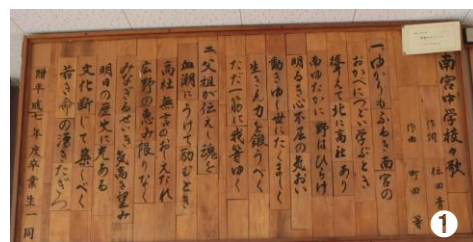 南宮中学校々歌
作詞
作曲 町田 等
一、ゆかりもふるき南宮の
おかべにつどい学ぶとき
聳えて北に高社あり
南ゆたかに野はひらけ
明るき心不屈の気おい
動きゆく世にたくましく
生きん力を鍛うべく
ただ一筋に我等ゆく
二、父祖が伝えし魂を
血潮にうけて励むとき
高社無言のおしえたれ
広野の恵み限りなく
みなぎるせいき気高き望み
明日の歴史に光ある
文化断じて築くべく
若き命の湧きたぎつ
贈 平成七年度卒業生一同
1